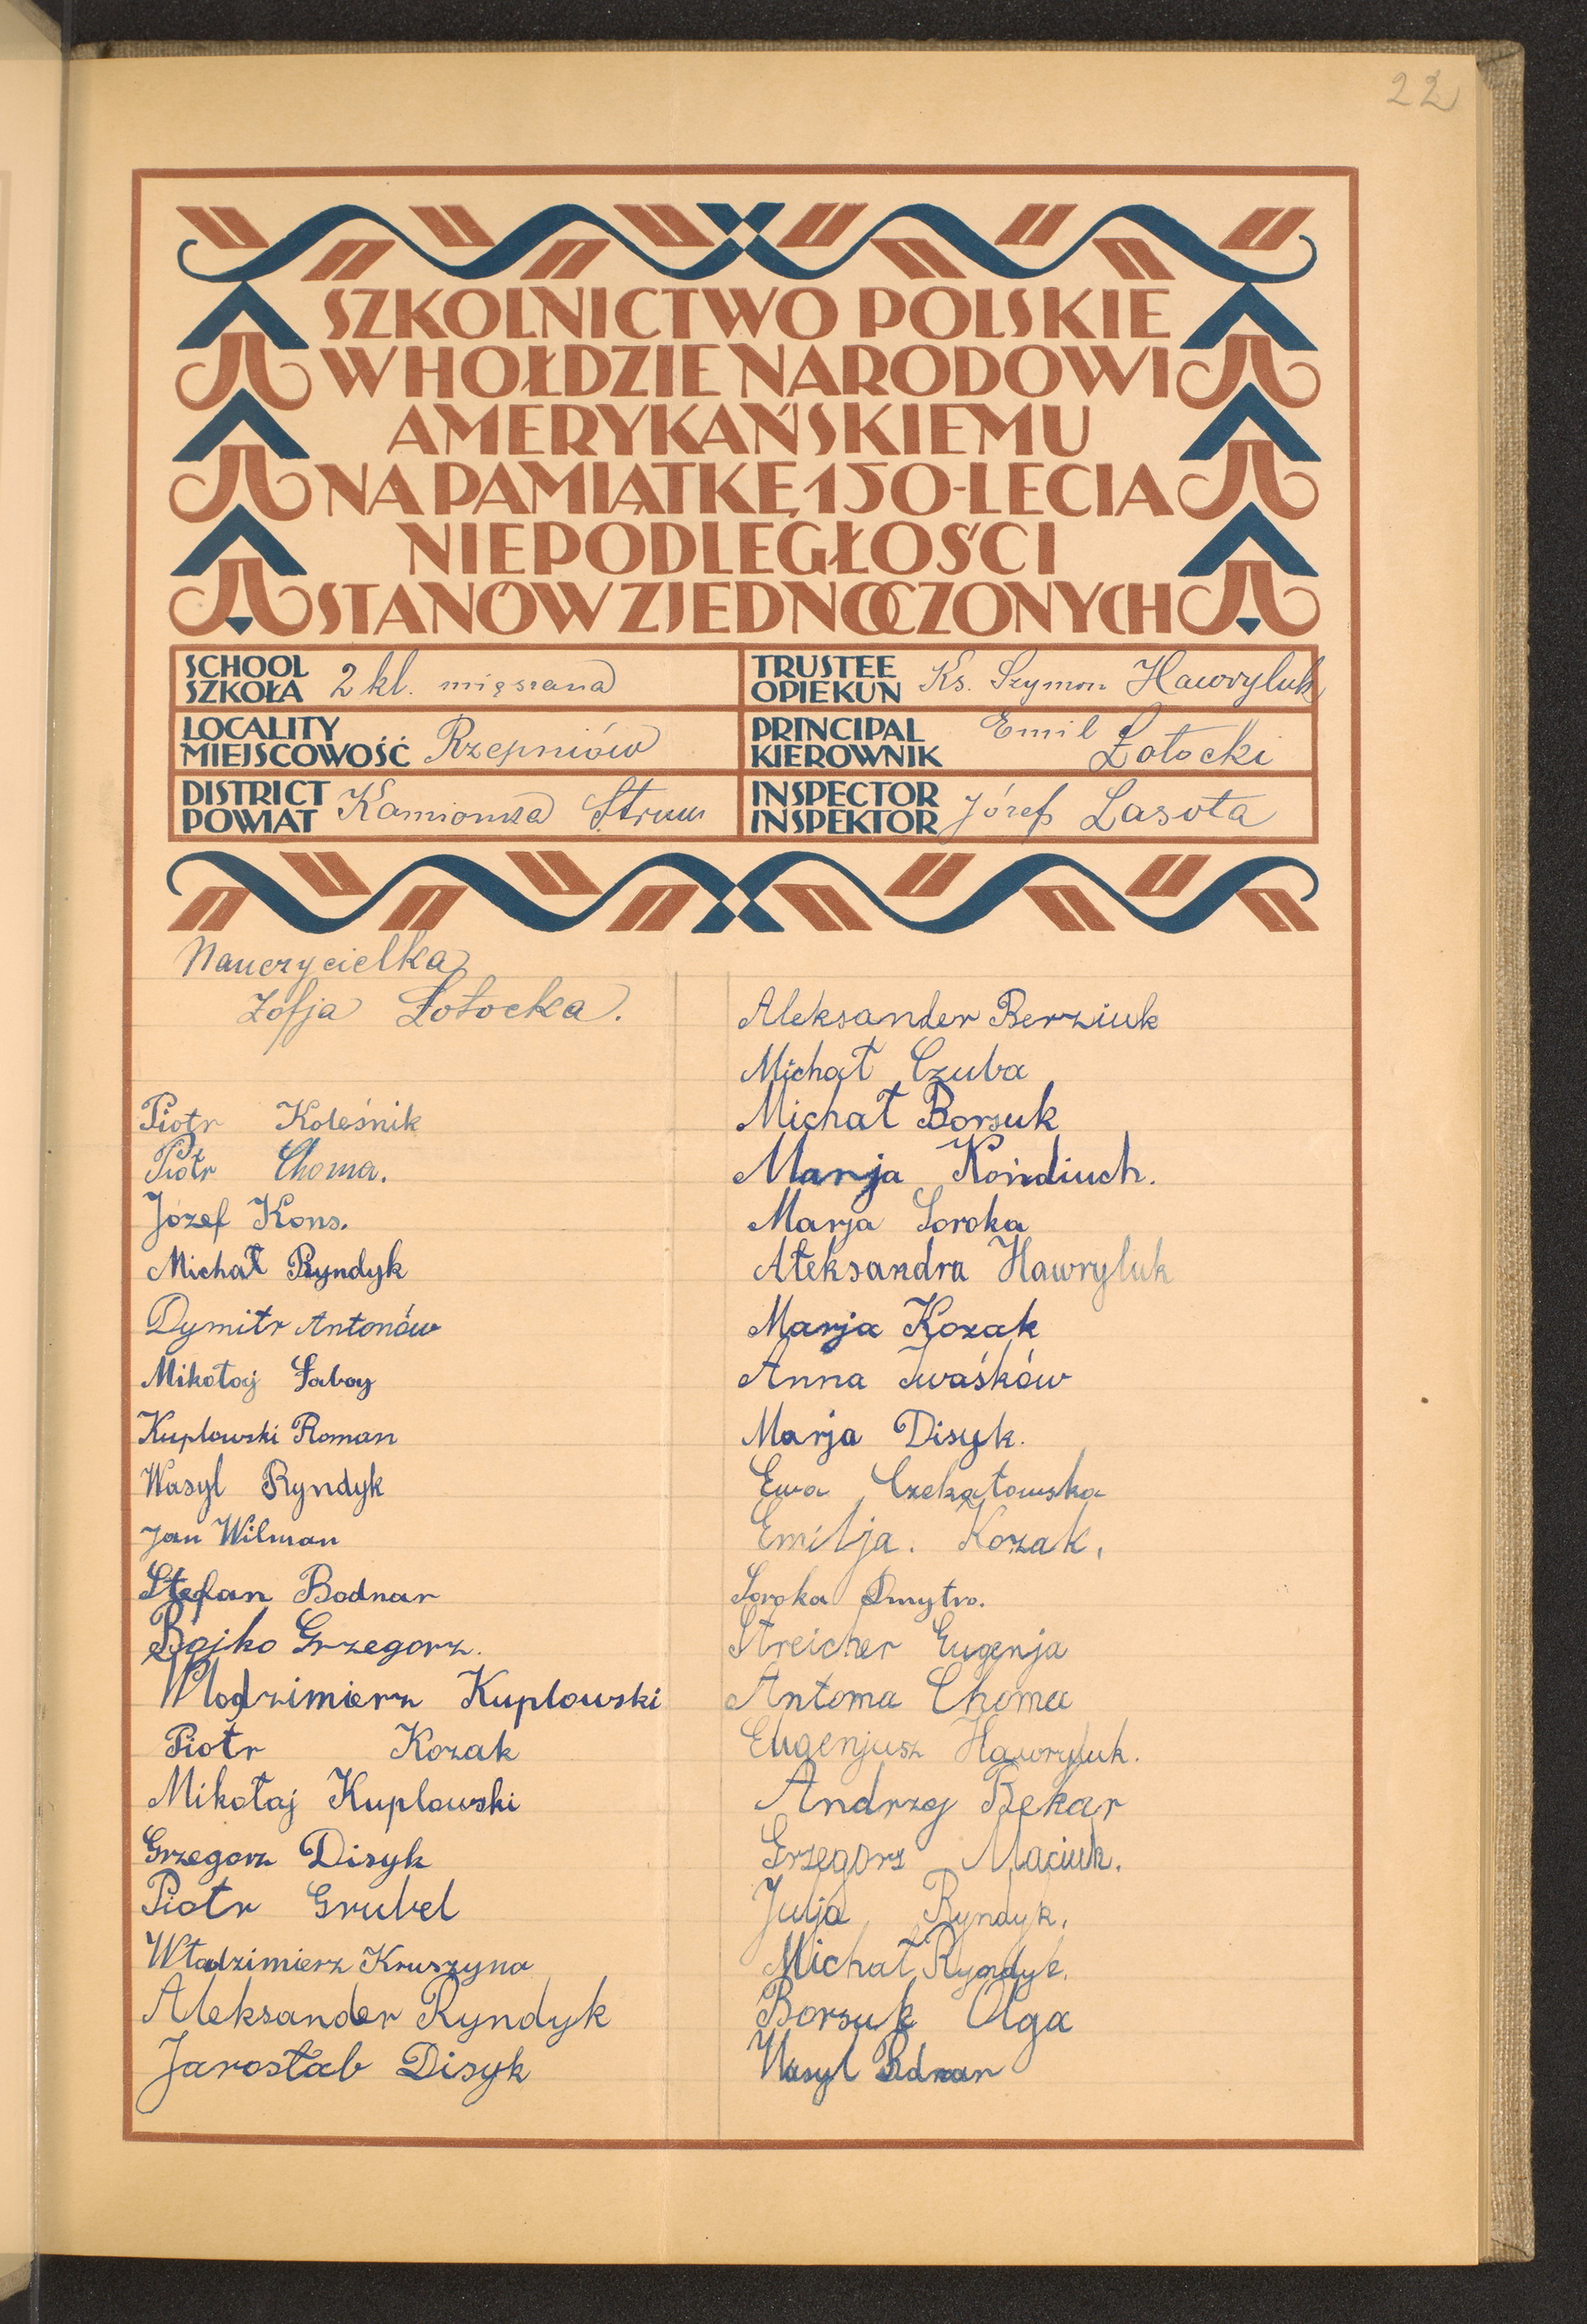 22
SZKOLNICTWO POLSKIE
W HOŁDZIE NARODOWI
AMERYKAŃSKIEMU
NA PAMIĄTKĘ 150-LECIA
NIEPODLEGŁOŚCI
STANÓW ZJEDNOCZONYCH
SCHOOL
SZKOŁA 2 kl. mięszana
TRUSTEE
OPIEKUN Ks. Szymon Hawryluk
LOCALITY
MIEJSCOWOŚĆ Rzepniów
PRINCIPAL
KIEROWNIK Emil
Łotocki
DISTRICT
POWIAT Kamionka Strum
INSPECTOR
INSPEKTOR Józef Lasota
Nauczycielka
Zofja Łotocka.
Piotr Koleśnik
Piotr Choma.
Józef Kons.
Michał Ryndyk
Dymitr Antonów
Mikołaj Łaboy
Kuplowski Roman
Wasyl Ryndyk
Jan Wilman
Stefan Bodnar
Bojko Grzegorz.
Włodzimierz Kuplowski
Piotr Kozak
Mikołaj Kuplowski
Grzegorz Disyk
Piotr Grubel
Władzimierz Kruszyna
Aleksander Ryndyk
Jarosłab Disyk
Aleksander Berziuk
Michał Czuba
Michał Borsuk
Marja Końdiuch.
Marja Soroka
Ałeksandra Hawryluk
Marja Kozak
Anna Iwaśków
Marja Disyk.
Ewa Czekałowska
Emilja. Kozak.
Soroka Dmytro.
Streicher Eugenja
Antoma Choma
Eugenjusz Hawryluk.
Andrzej Bekar
Grzegorz Maciuk.
Julja Ryndyk.
Michał Ryndyk.
Borsuk Olga
Wasyl Bdnar